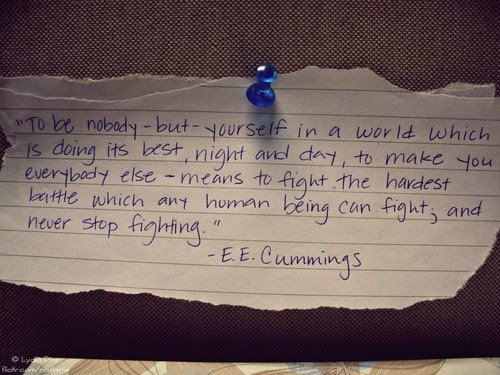 "To be nobody-but-yourself in a world which
is doing its best, night and day, to make you
everybody else - means to fight the hardest
battle which any human being can fight; and
never stop fighting."
- E.E. Cummings
© Lydia